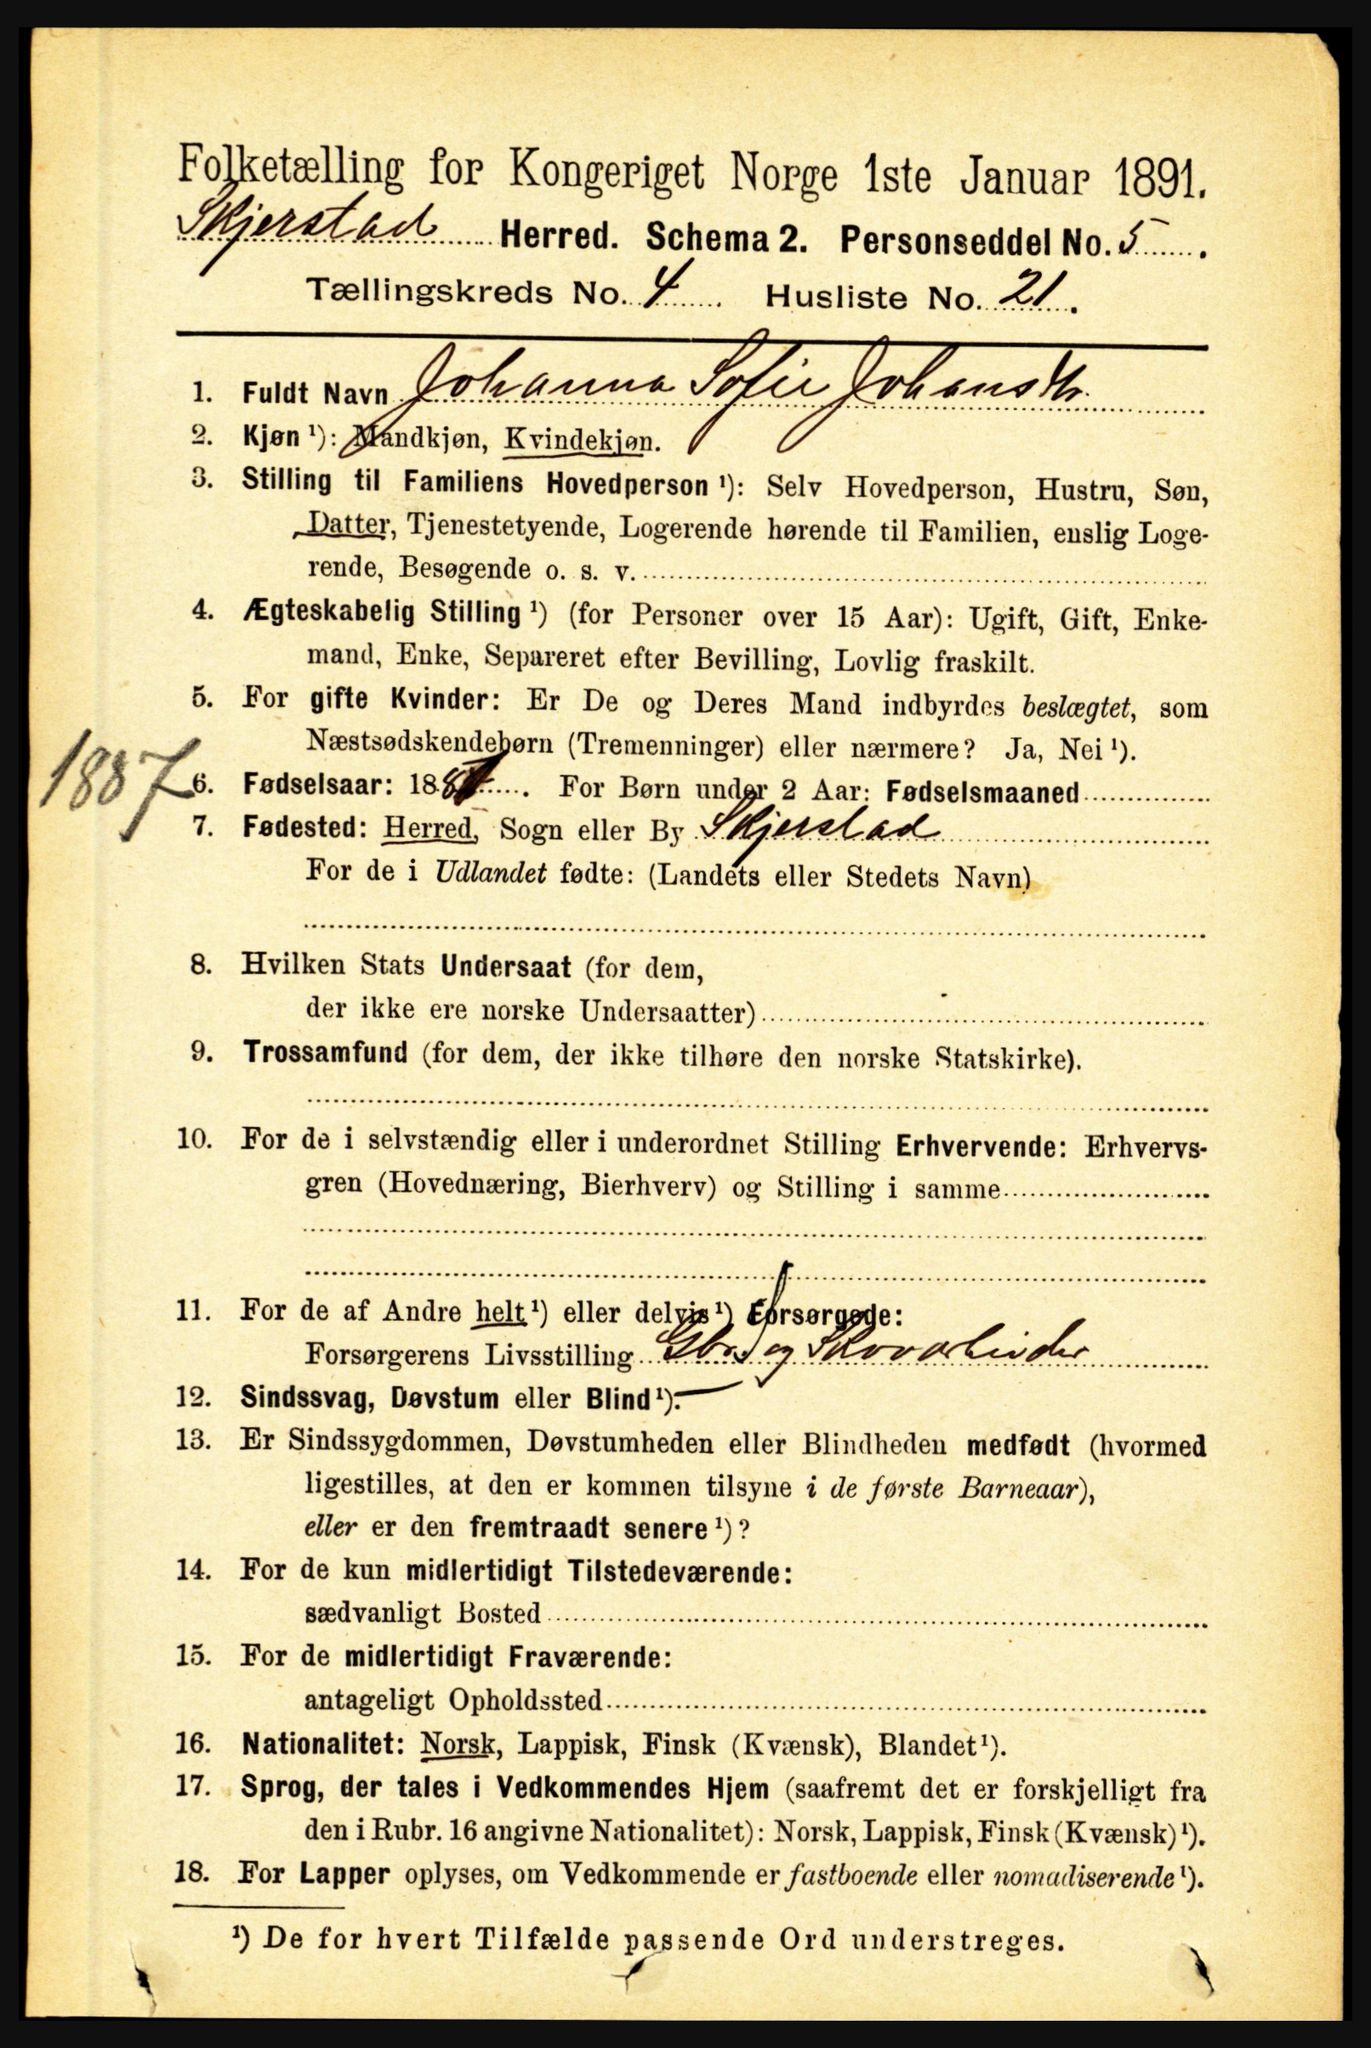 Folketælling for Kongeriget Norge 1ste Januar 1891.
Skjerstad Herred. Schema 2. Personseddel No. 5.
Tællingskreds No. 4 Husliste No. 21.
1. Fuldt Navn Johanna Sofie Johansdtr.
2. Kjøn ¹): Mandkjøn, Kvindekjøn.
3. Stilling til Familiens Hovedperson ¹): Selv Hovedperson, Hustru, Søn,
Datter, Tjenestetyende, Logerende hørende til Familien, enslig Loge-
rende, Besøgende o. s. v.
4. Ægteskabelig Stilling ¹) (for Personer over 15 Aar): Ugift, Gift, Enke-
mand, Enke, Separeret efter Bevilling, Lovlig fraskilt.
5. For gifte Kvinder: Er De og Deres Mand indbyrdes beslægtet, som
Næstsødskendebørn (Tremenninger) eller nærmere? Ja, Nei ¹).
1887
6. Fødselsaar: 1887. For Børn under 2 Aar: Fødselsmaaned
7. Fødested: Herred, Sogn eller By Skjerstad
For de i Udlandet fødte: (Landets eller Stedets Navn)
8. Hvilken Stats Undersaat (for dem,
der ikke ere norske Undersaatter)
9. Trossamfund (for dem, der ikke tilhøre den norske Statskirke).
10. For de i selvstændig eller i underordnet Stilling Erhvervende: Erhvervs-
gren (Hovednæring, Bierhverv) og Stilling i samme
11. For de af Andre helt ¹) eller delvis ¹) Forsørgede:
Forsørgerens Livsstilling Gbr. og Skovarbeider
12. Sindssvag, Døvstum eller Blind ¹).
13. Er Sindssygdommen, Døvstumheden eller Blindheden medfødt (hvormed
ligestilles, at den er kommen tilsyne i de første Barneaar),
eller er den fremtraadt senere ¹)?
14. For de kun midlertidigt Tilstedeværende:
sædvanligt Bosted
15. For de midlertidigt Fraværende:
antageligt Opholdssted
16. Nationalitet: Norsk, Lappisk, Finsk (Kvænsk), Blandet ¹).
17. Sprog, der tales i Vedkommendes Hjem (saafremt det er forskjelligt fra
den i Rubr. 16 angivne Nationalitet): Norsk, Lappisk, Finsk (Kvænsk) ¹).
18. For Lapper oplyses, om Vedkommende er fastboende eller nomadiserende ¹).
¹) De for hvert Tilfælde passende Ord understreges.